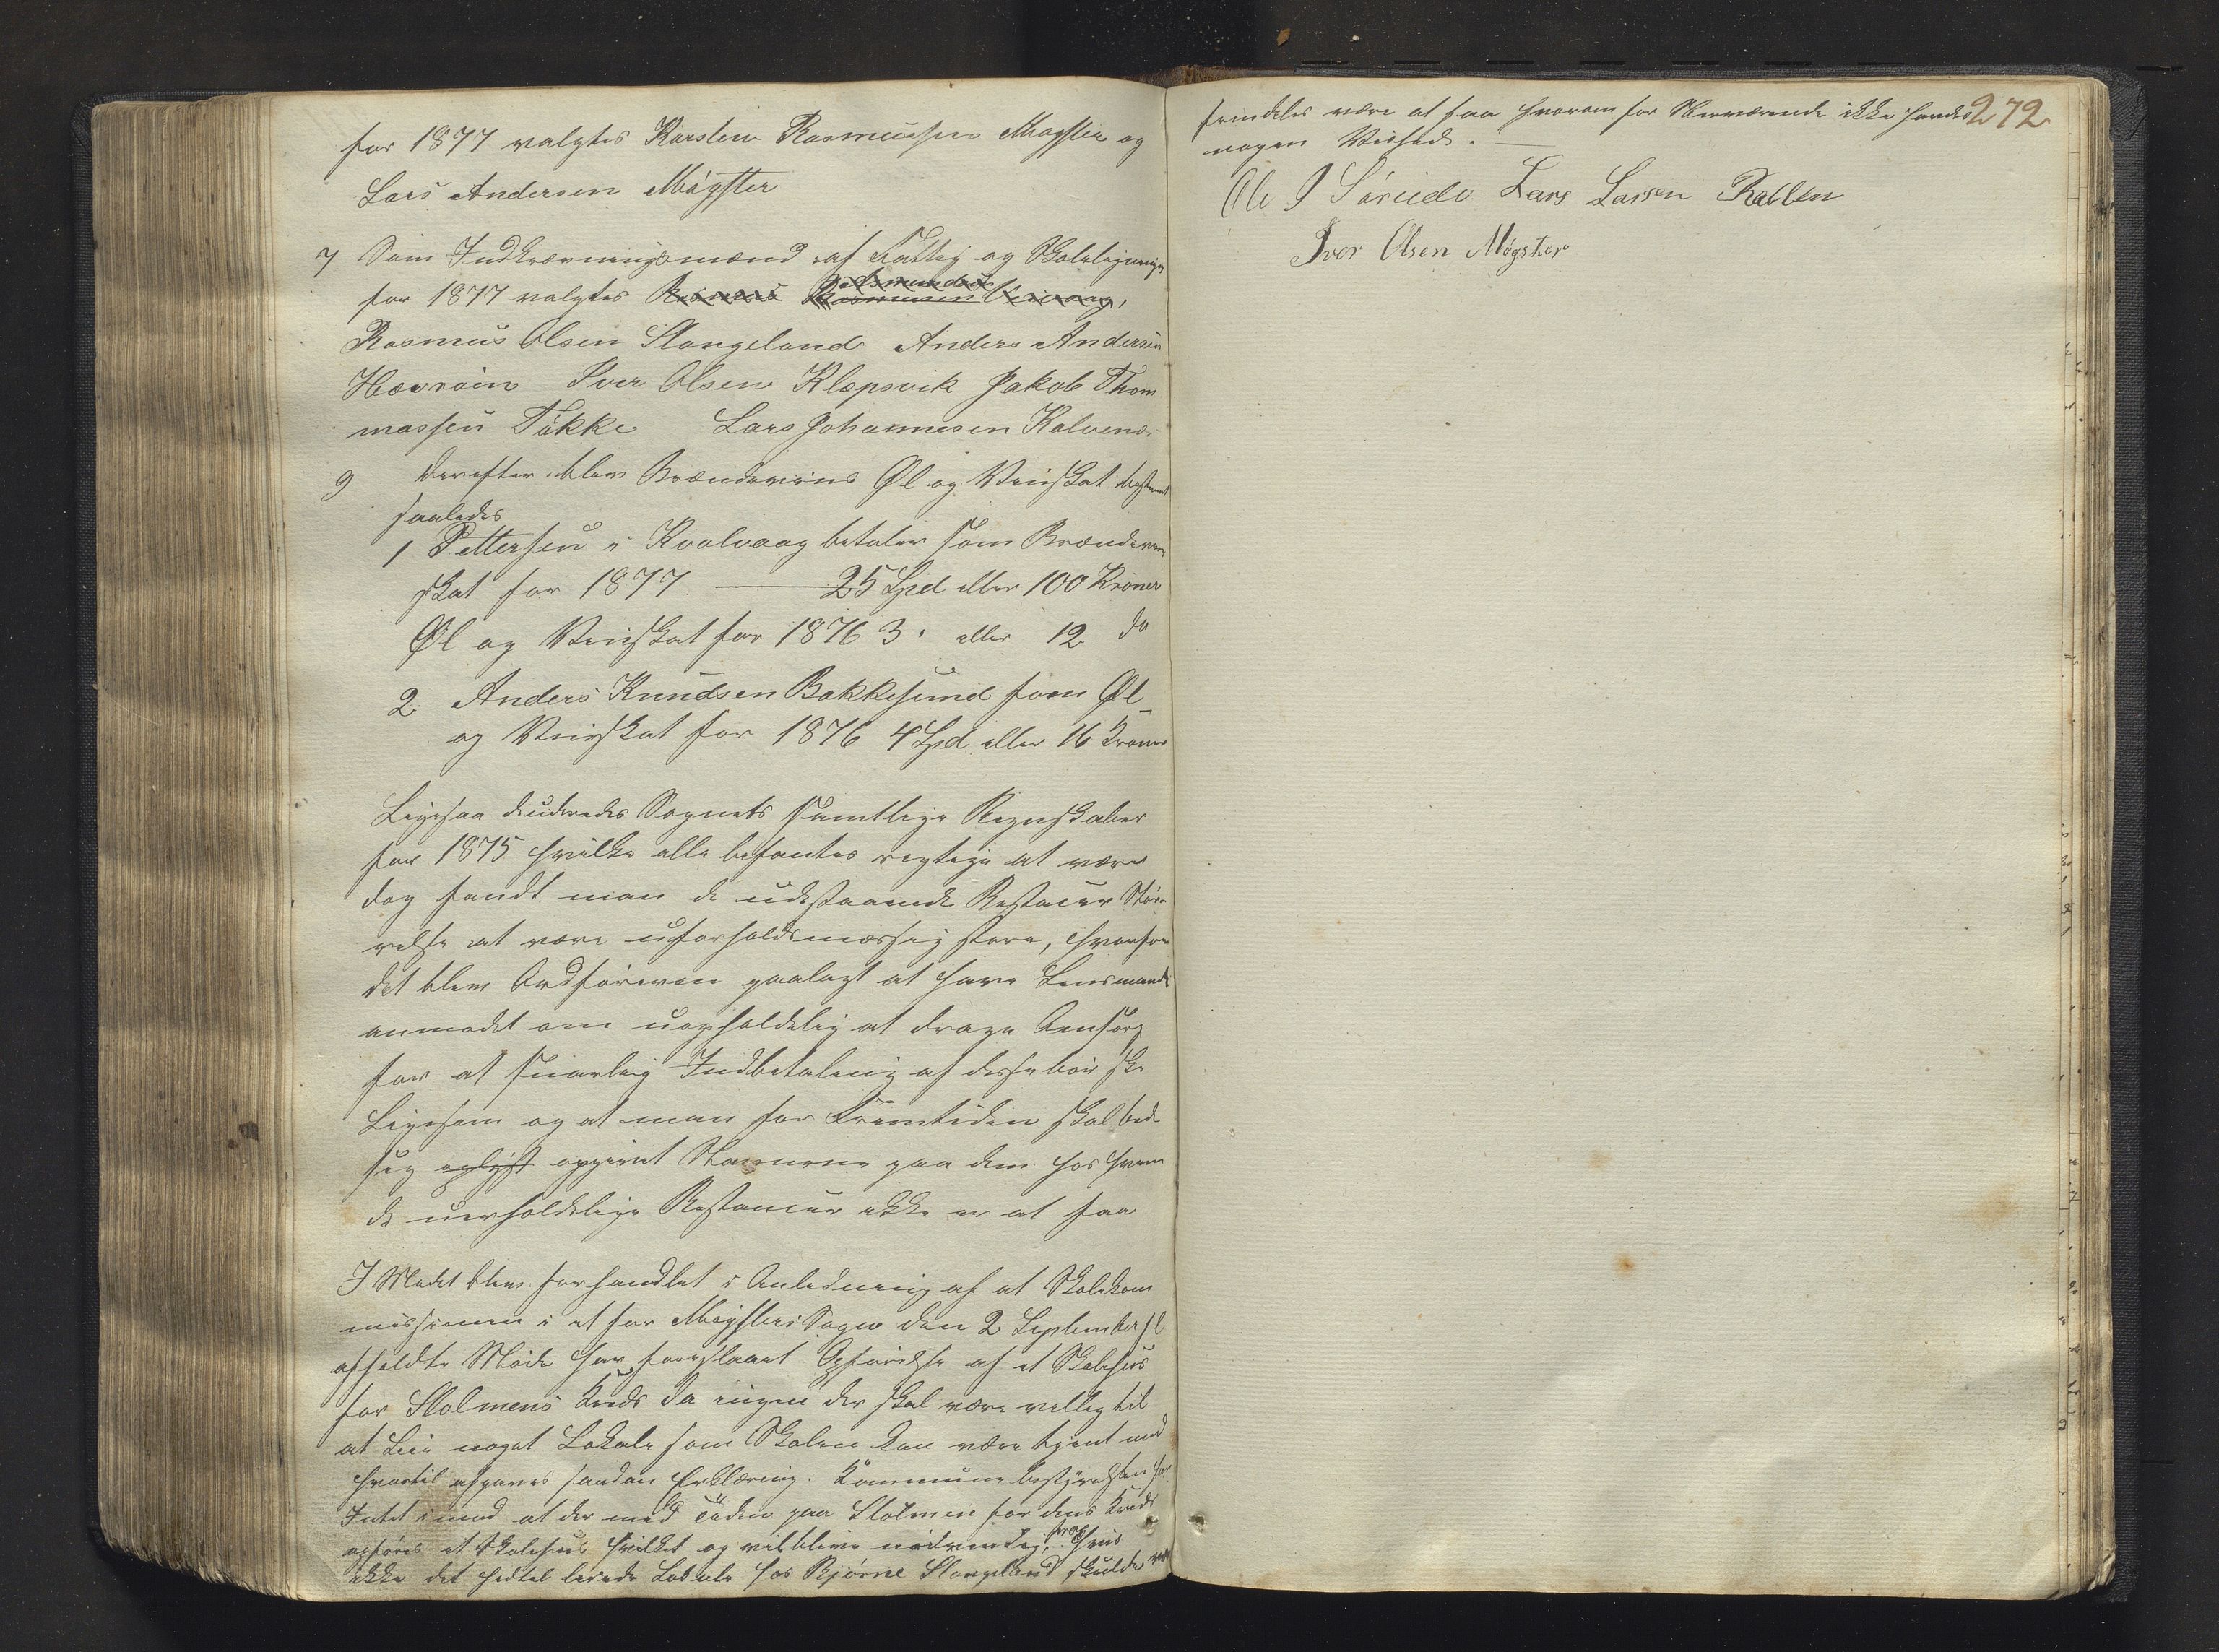 for 1877 valgtes Karsten Rasmussen Møgster og
Lars Andersen Møgster
7 Som Indkrævningsmænd af Fattig og Skoleligningen
for 1877 valgtes Rasmus Rasmussen Aamundsen
Rasmus Olsen Stangeland Anders Andersen
Hevrøin Iver Olsen Klepsvik Jakob Thom
massen Takke Lars Johannesen Kalvenæs
9 Derefter blev Brændevins Øl og Vinskat bestemt
saaledes
1 Pettersen i Kvalvaag betaler som Brændevins
skat for 1877 — 25 Spd eller 100 Kroner
Øl og Vinskat for 1876 3 " eller 12 do
2 Anders Knudsen Bakkesund som Øl-
og Vinskat for 1876 4 Spd eller 16 Kroner
Ligesaa Sognets samtlige Regnskaber
for 1875 hvilke alle befantes rigtige at være
dog fandt man de udestaaende Restancer Stør-
relse at være uforholdsmæssig store, hvorfor
det blev Ordføreren paalagt at have Lensmand
anmodet om uopholdelig at drage Omsorg
for at snarlig Indbetaling af disse bør ske
Ligesom og at man for Fremtiden skal bede
sig oplyst opgivet Navnene paa dem hos hvem
de uerholdelige Restancer ikke er at faa
I Mødet blev forhandlet i Anledning af at Skolekom
missionen i et for Møgster Sogn den 2 September
afholdte Møde har foreslaaet Opførelse af et Skolehus
for Stolmens Kreds da ingen der skal være villig til
at Leie noget Lokale som Skolen kan være tjent med
hvortil afgaves saadan Erklæring. Kommunebestyrelsen har
Intet imod at der med Tiden paa Stolmen for dens Kreds
opføres et Skolehus hvilket og vil blive nødvendig, hvis
ikke det hidtil leiede Lokale hos Bjørne Stangeland skulde
272
fremdeles være at faa hvorom for Nærværende ikke havdes
nogen Vished. —
Ole J Sørude Lars Larsen Rabben
Iver Olsen Møgster